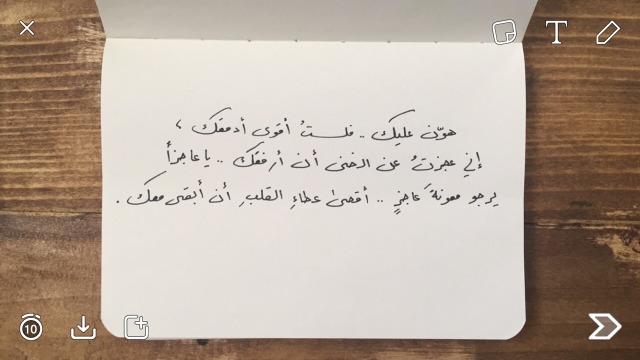 T
هوّن عليك .. فلستُ أقوى أدمعك ،
إني عجزتُ عن أن أرفعك .. يا عاجزاً
يرجو معونةَ عاجزٍ .. أقصى عطاءِ القلبِ أن أبقى معك .
10